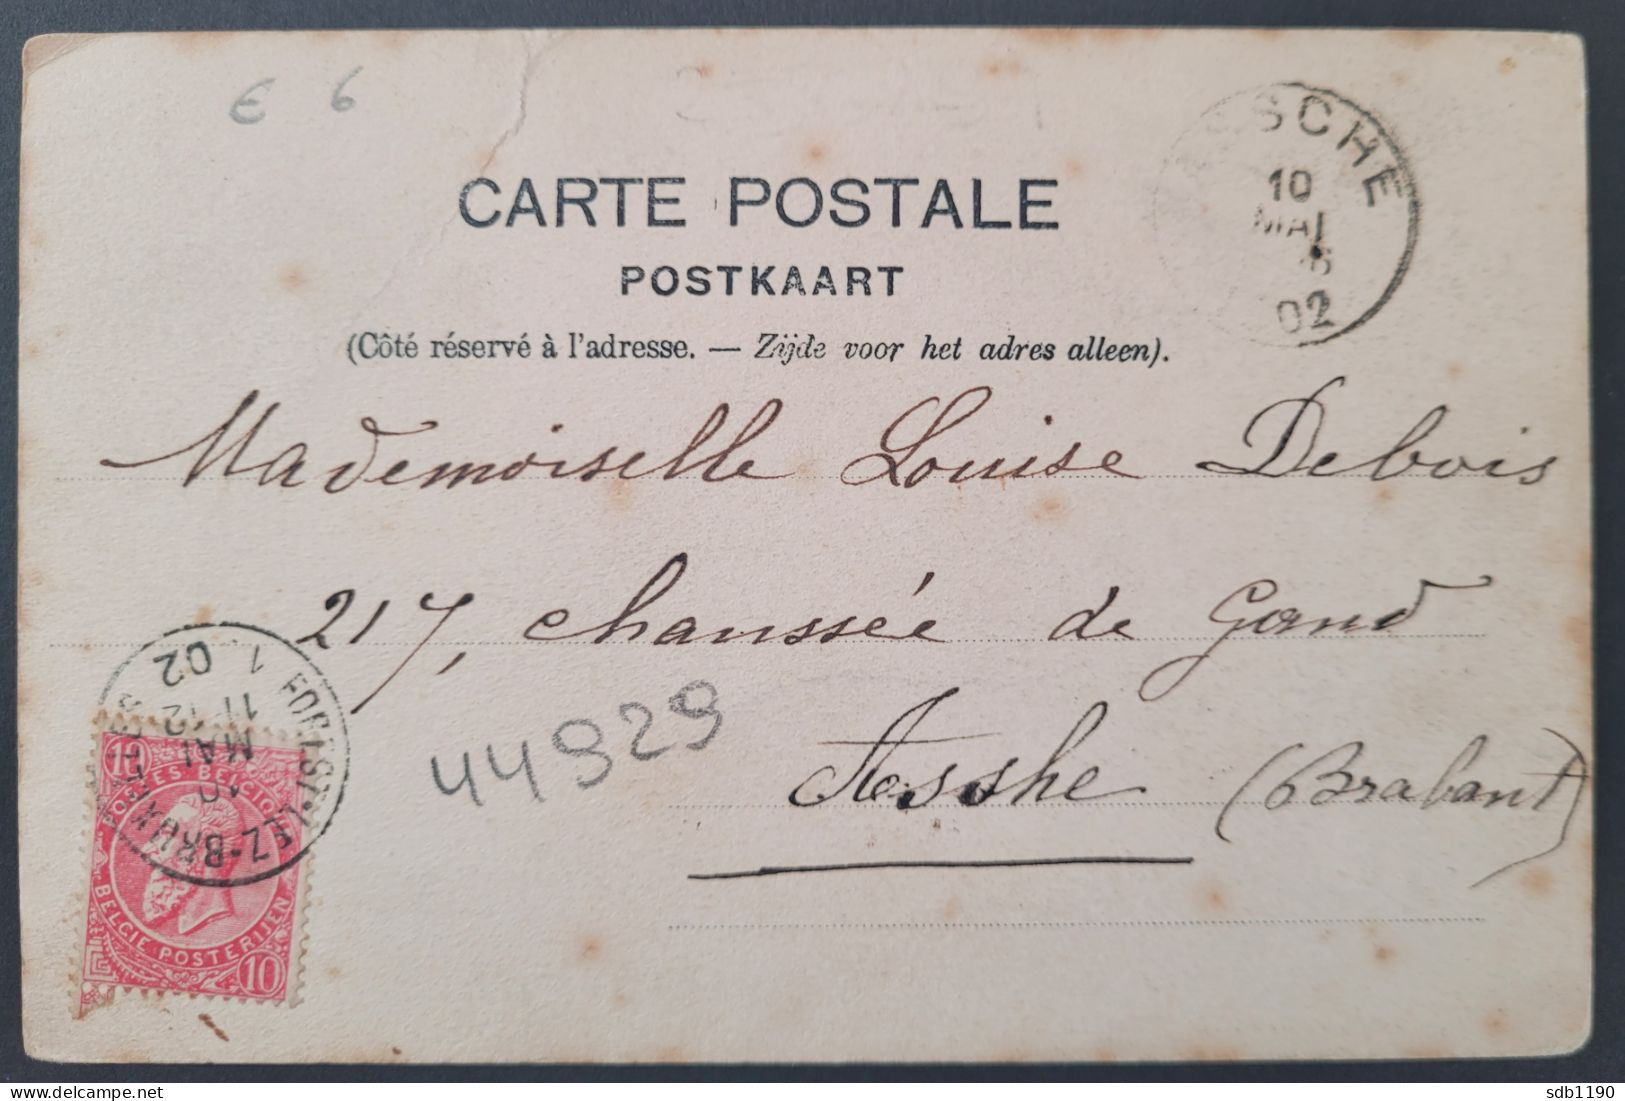 € 6
ASSCHE
10
MAI
02
CARTE POSTALE
POSTKAART
(Côté réservé à l'adresse. — Zijde voor het adres alleen).
Mademoiselle Louise Debois
217, chaussée de Gand
Assche (Brabant)
44929
10
MAI
11-12
02
POSTES BELGIQUE
BELGIE POSTERIJEN
10
sdb1190